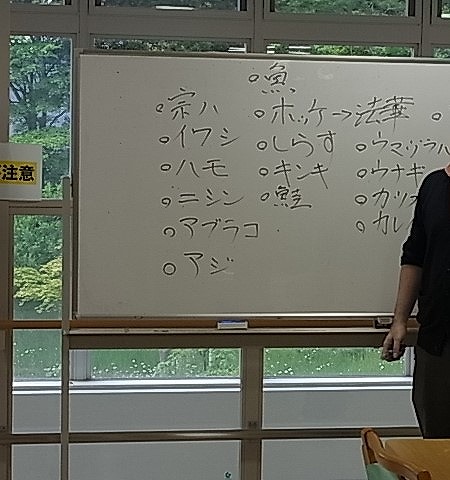 ○魚
○宗ハ
○イワシ
○ハモ
○ニシン
○アブラコ
○アジ
○ホッケ→法華
○しらす
○キンキ
○鮭
○
○ウマヅラハ
○ウナギ
○カツオ
○カレ
注意